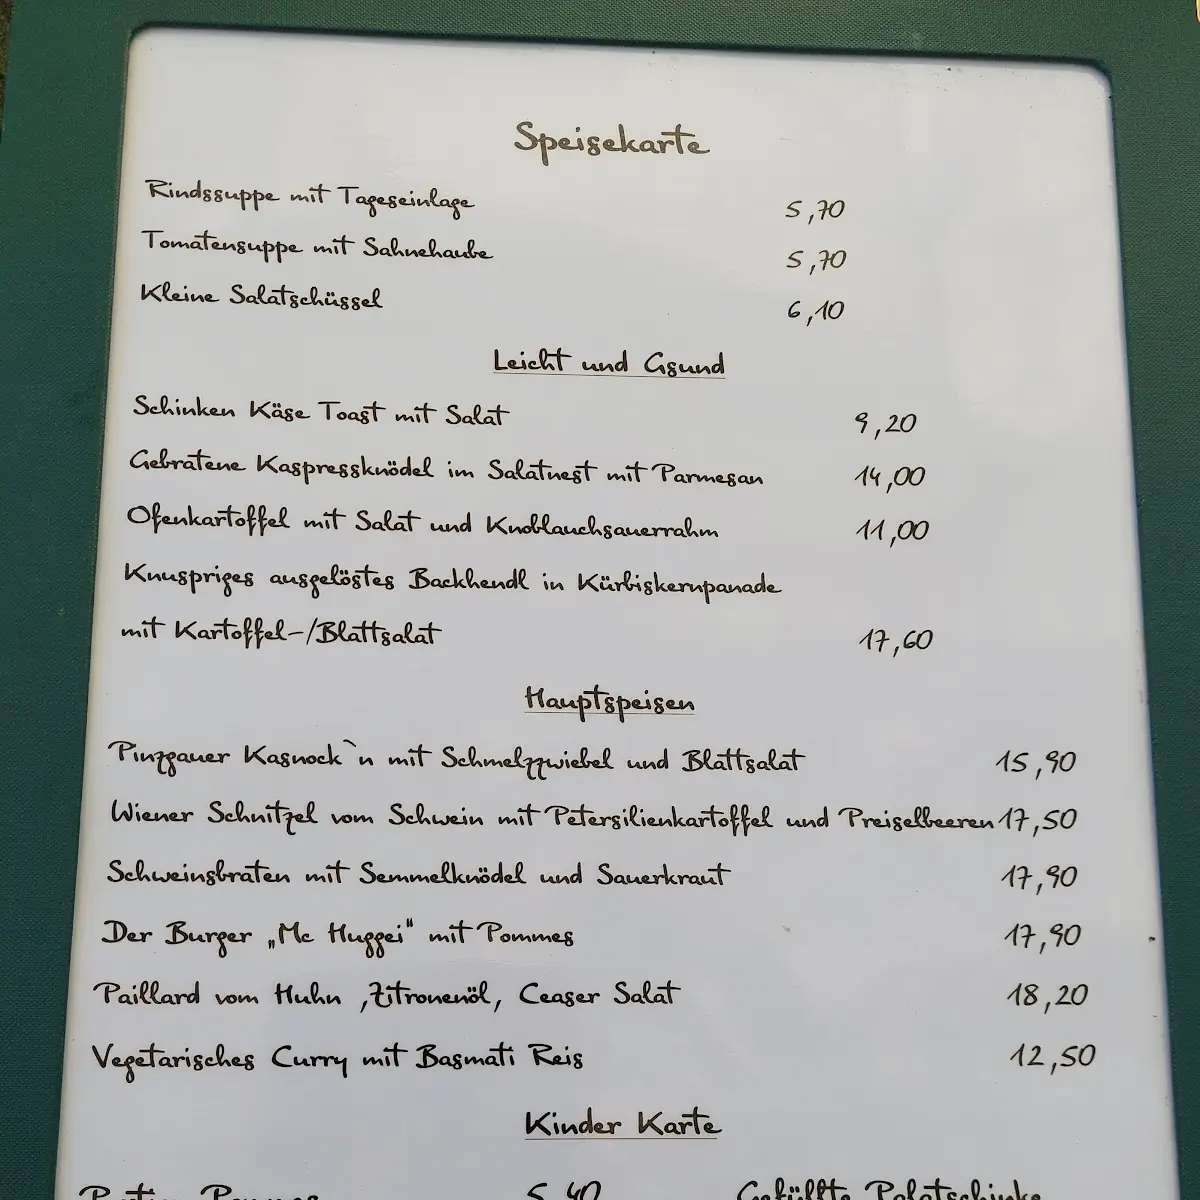 Speisekarte
Rindssuppe mit Tageseinlage 5,70
Tomatensuppe mit Sahnehaube 5,70
Kleine Salatschüssel 6,10
Leicht und Gsund
Schinken Käse Toast mit Salat 9,20
Gebratene Kaspressknödel im Salatnest mit Parmesan 14,00
Ofenkartoffel mit Salat und Knoblauchsauerrahm 11,00
Knuspriges ausgelöstes Backhendl in Kürbiskernpanade
mit Kartoffel-/Blattsalat 17,60
Hauptspeisen
Pinzgauer Kasnock`n mit Schmelzzwiebel und Blattsalat 15,90
Wiener Schnitzel vom Schwein mit Petersilienkartoffel und Preiselbeeren 17,50
Schweinsbraten mit Semmelknödel und Sauerkraut 17,90
Der Burger „Mc Huggei" mit Pommes 17,90
Paillard vom Huhn ,Zitronenöl, Ceaser Salat 18,20
Vegetarisches Curry mit Basmati Reis 12,50
Kinder Karte
Portion Pommes 5,40 Gefüllte Palatschinke